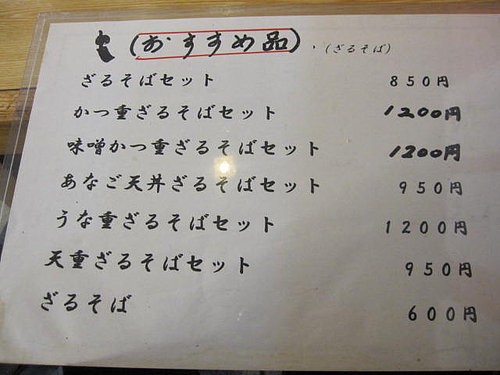 (おすすめ品)・(ざるそば)
ざるそばセット 850円
かつ重ざるそばセット 1200円
味噌かつ重ざるそばセット 1200円
あなご天丼ざるそばセット 950円
うな重ざるそばセット 1200円
天重ざるそばセット 950円
ざるそば 600円